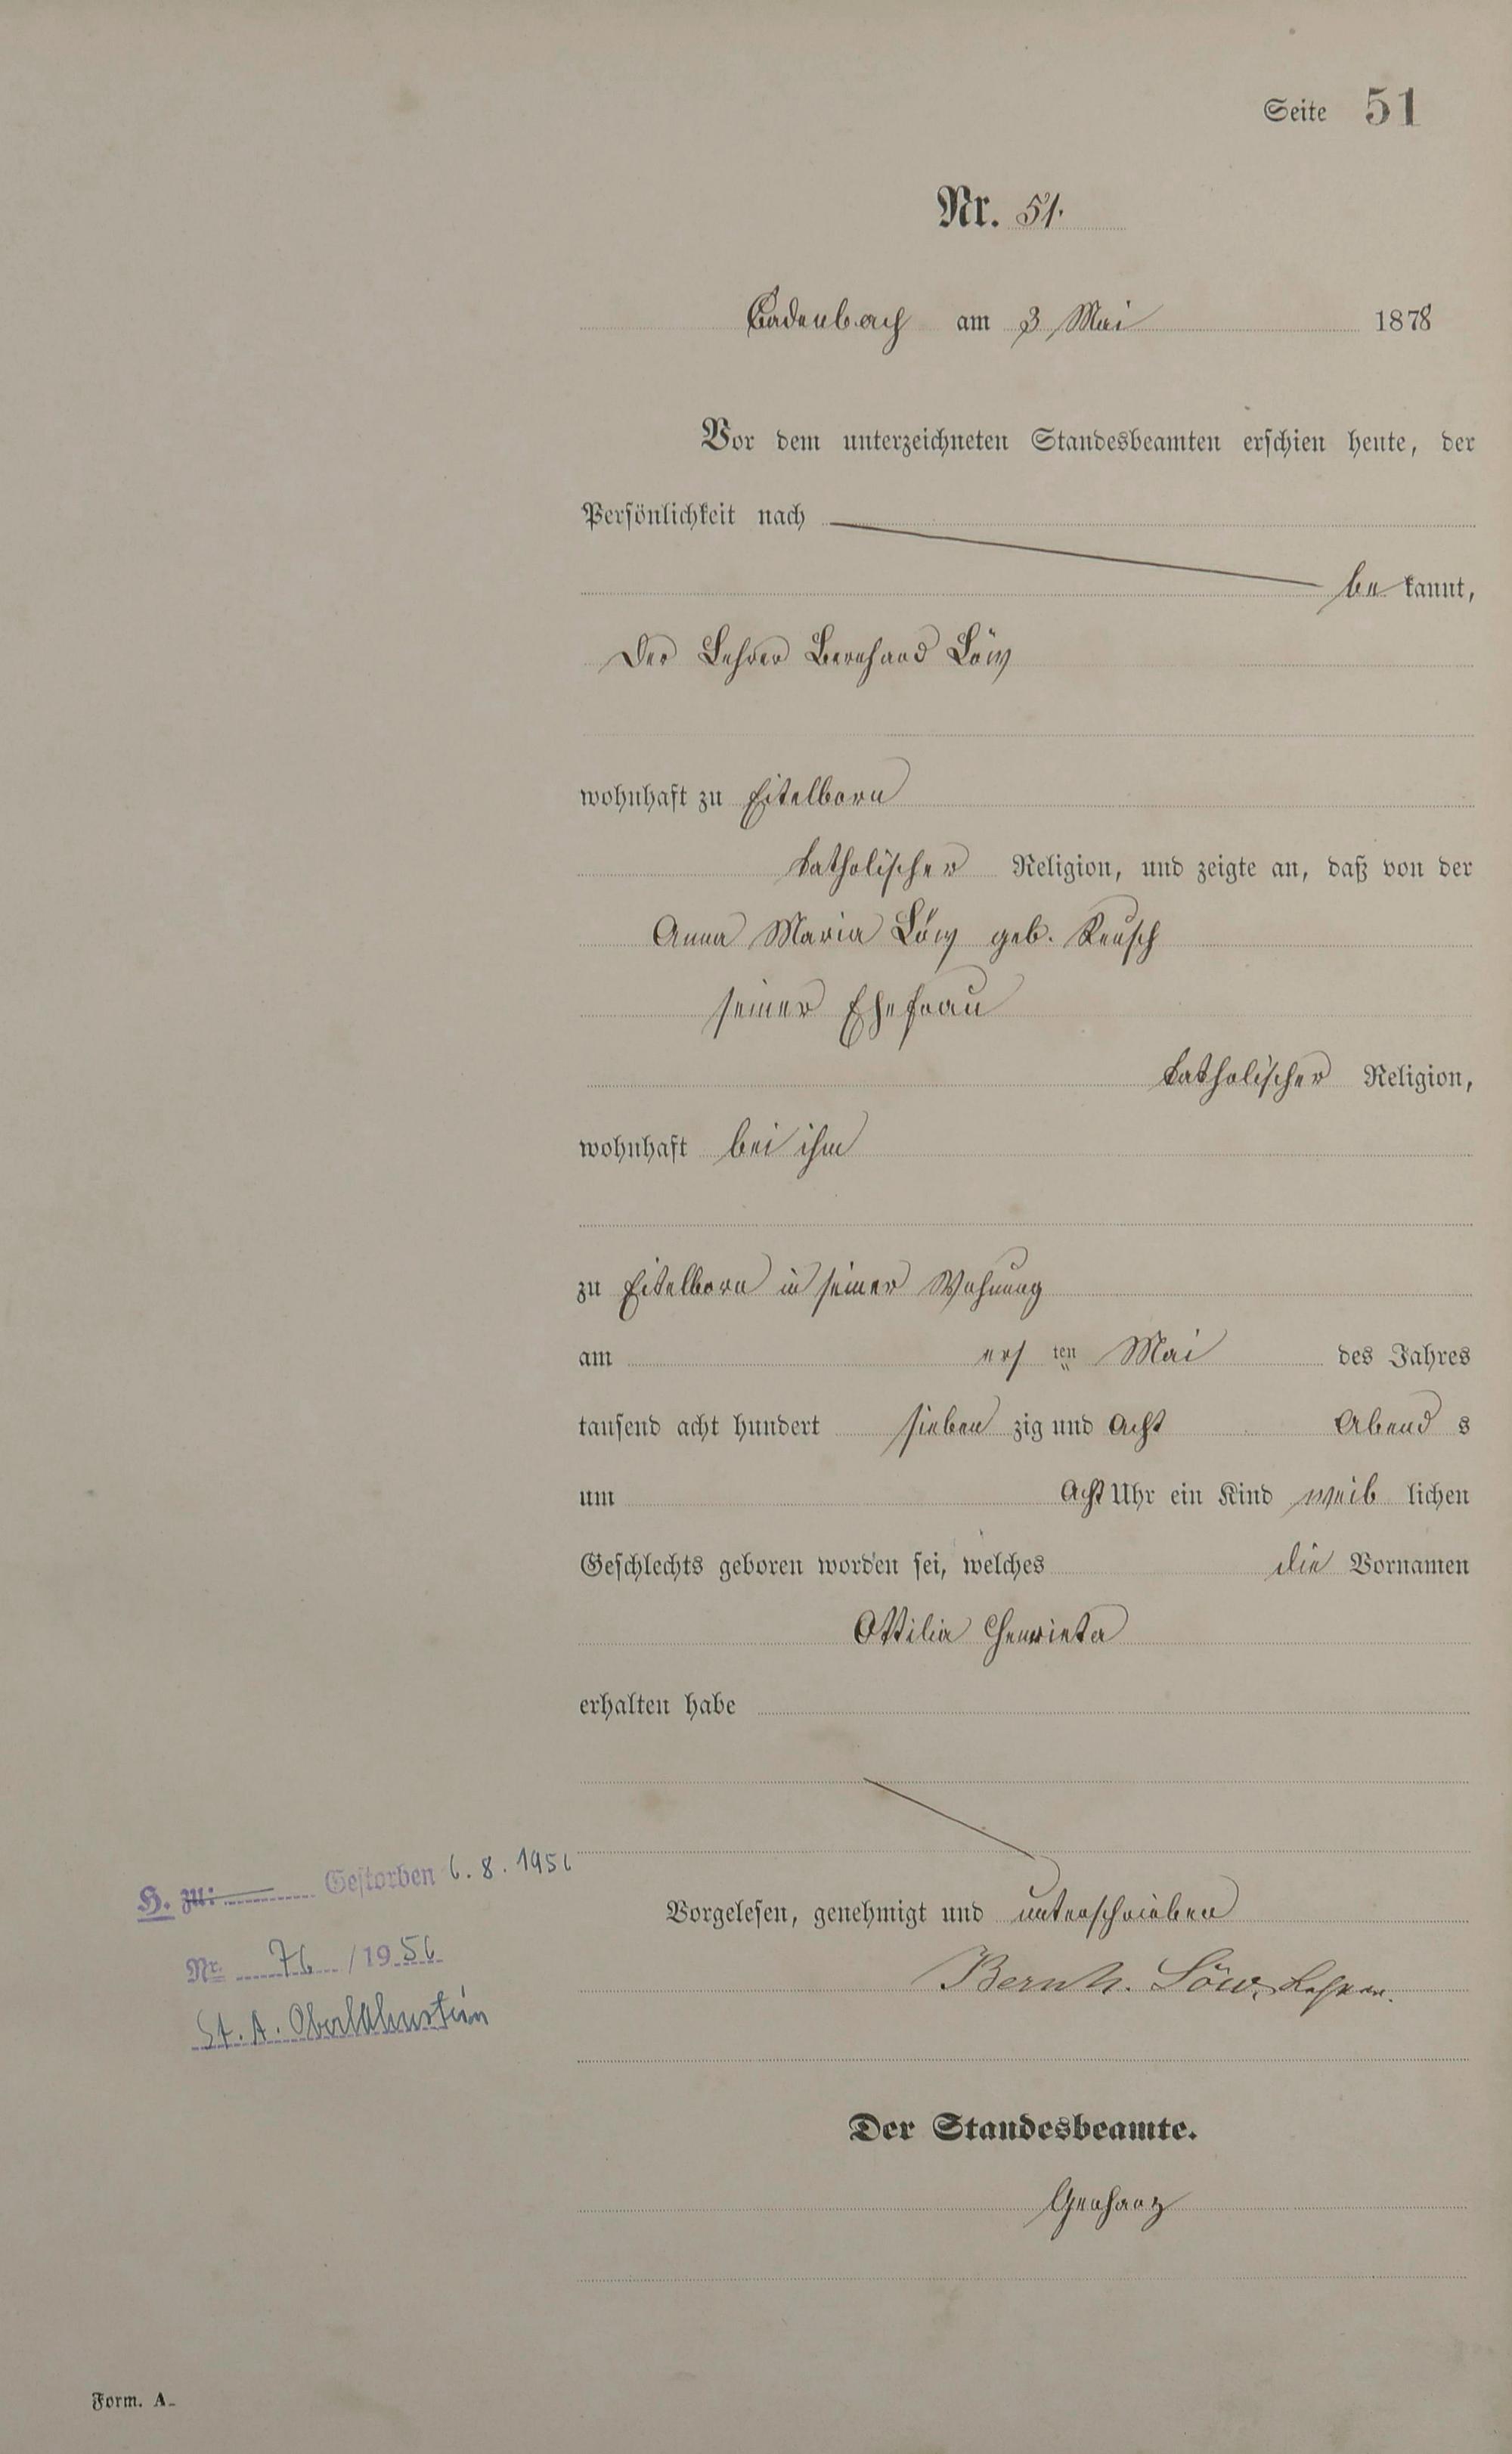 Seite 51
Nr. 51.
Cadenbach am 3 Mai 1878
Vor dem unterzeichneten Standesbeamten erschien heute, der
Persönlichkeit nach
be kannt,
Der Lehrer Bernhard Löw
wohnhaft zu Eitelborn
katholischer Religion, und zeigte an, daß von der
Anna Maria Löw geb. Reusch
seiner Ehefrau
katholischer Religion,
wohnhaft bei ihm
zu Eitelborn in seiner Wohnung
am ers ten Mai des Jahres
tausend acht hundert sieben zig und acht Abend s
um acht Uhr ein Kind weib lichen
Geschlechts geboren worden sei, welches die Vornamen
Ottilia Henrieta
erhalten habe
H. zu: Gestorben 6.8.1956
Vorgelesen, genehmigt und unterschrieben
Nr. 76 / 1956
Bernh. Löw, Lehrer.
St. A. Oberlahnstein
Der Standesbeamte.
Gerharz
Form. A.